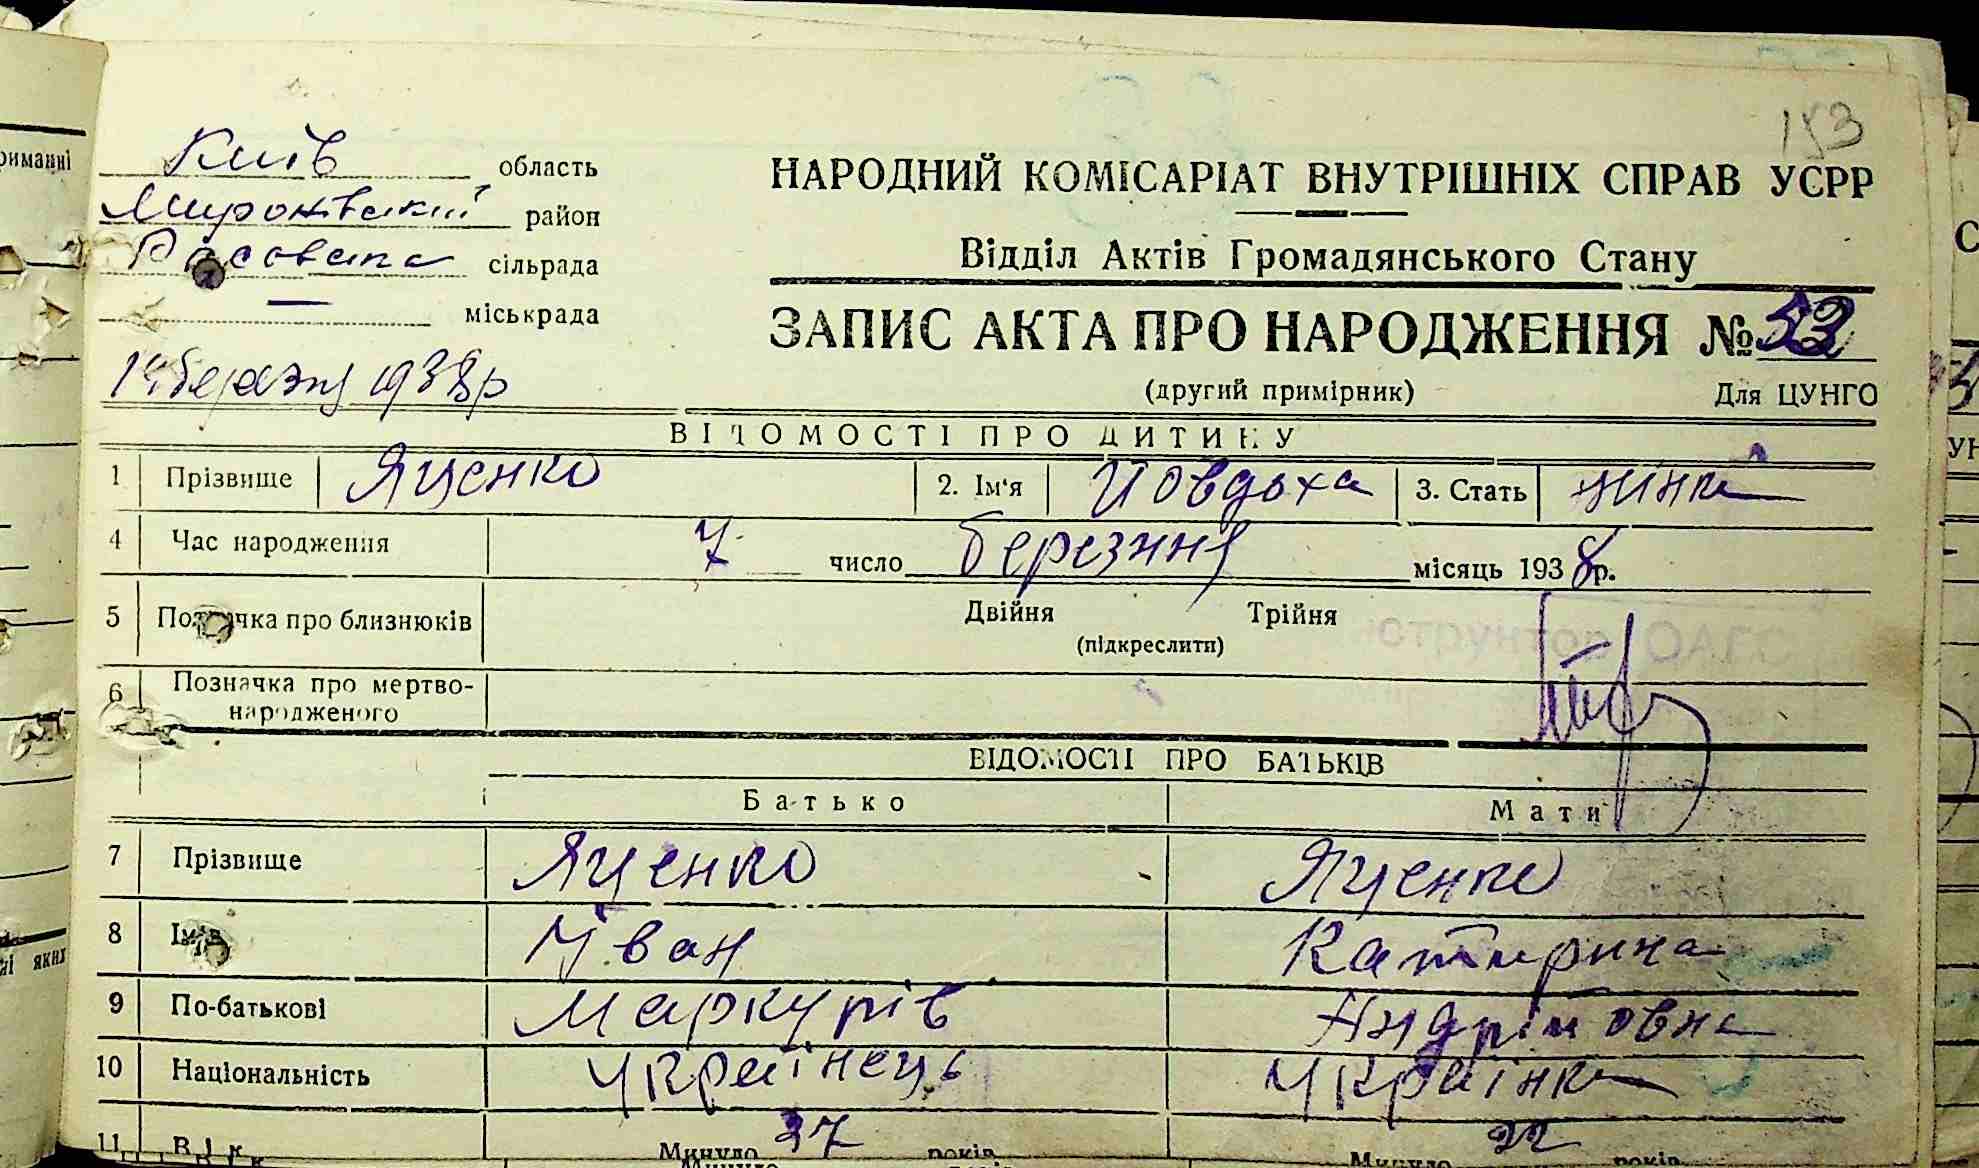 153
Київ область
Миронівський район
Росавська сільрада
— міськрада
14 березня 1938 р
НАРОДНИЙ КОМІСАРІАТ ВНУТРІШНІХ СПРАВ УСРР
Відділ Актів Громадянського Стану
ЗАПИС АКТА ПРО НАРОДЖЕННЯ № 53
(другий примірник) Для ЦУНГО
ВІДОМОСТІ ПРО ДИТИНУ
1 Прізвище Яценко 2. Ім'я Йовдоха 3. Стать жінка
4 Час народження 7 число березня місяць 1938 р.
5 Позначка про близнюків Двійня Трійня
(підкреслити)
6 Позначка про мертво-
народженого
ВІДОМОСТІ ПРО БАТЬКІВ
Батько Мати
7 Прізвище Яценко Яценко
8 Ім'я Іван Катирина
9 По-батькові Маркурів Андріівовна
10 Національність Українець Українка
11 Вік Минуло 37 років Минуло 22 років